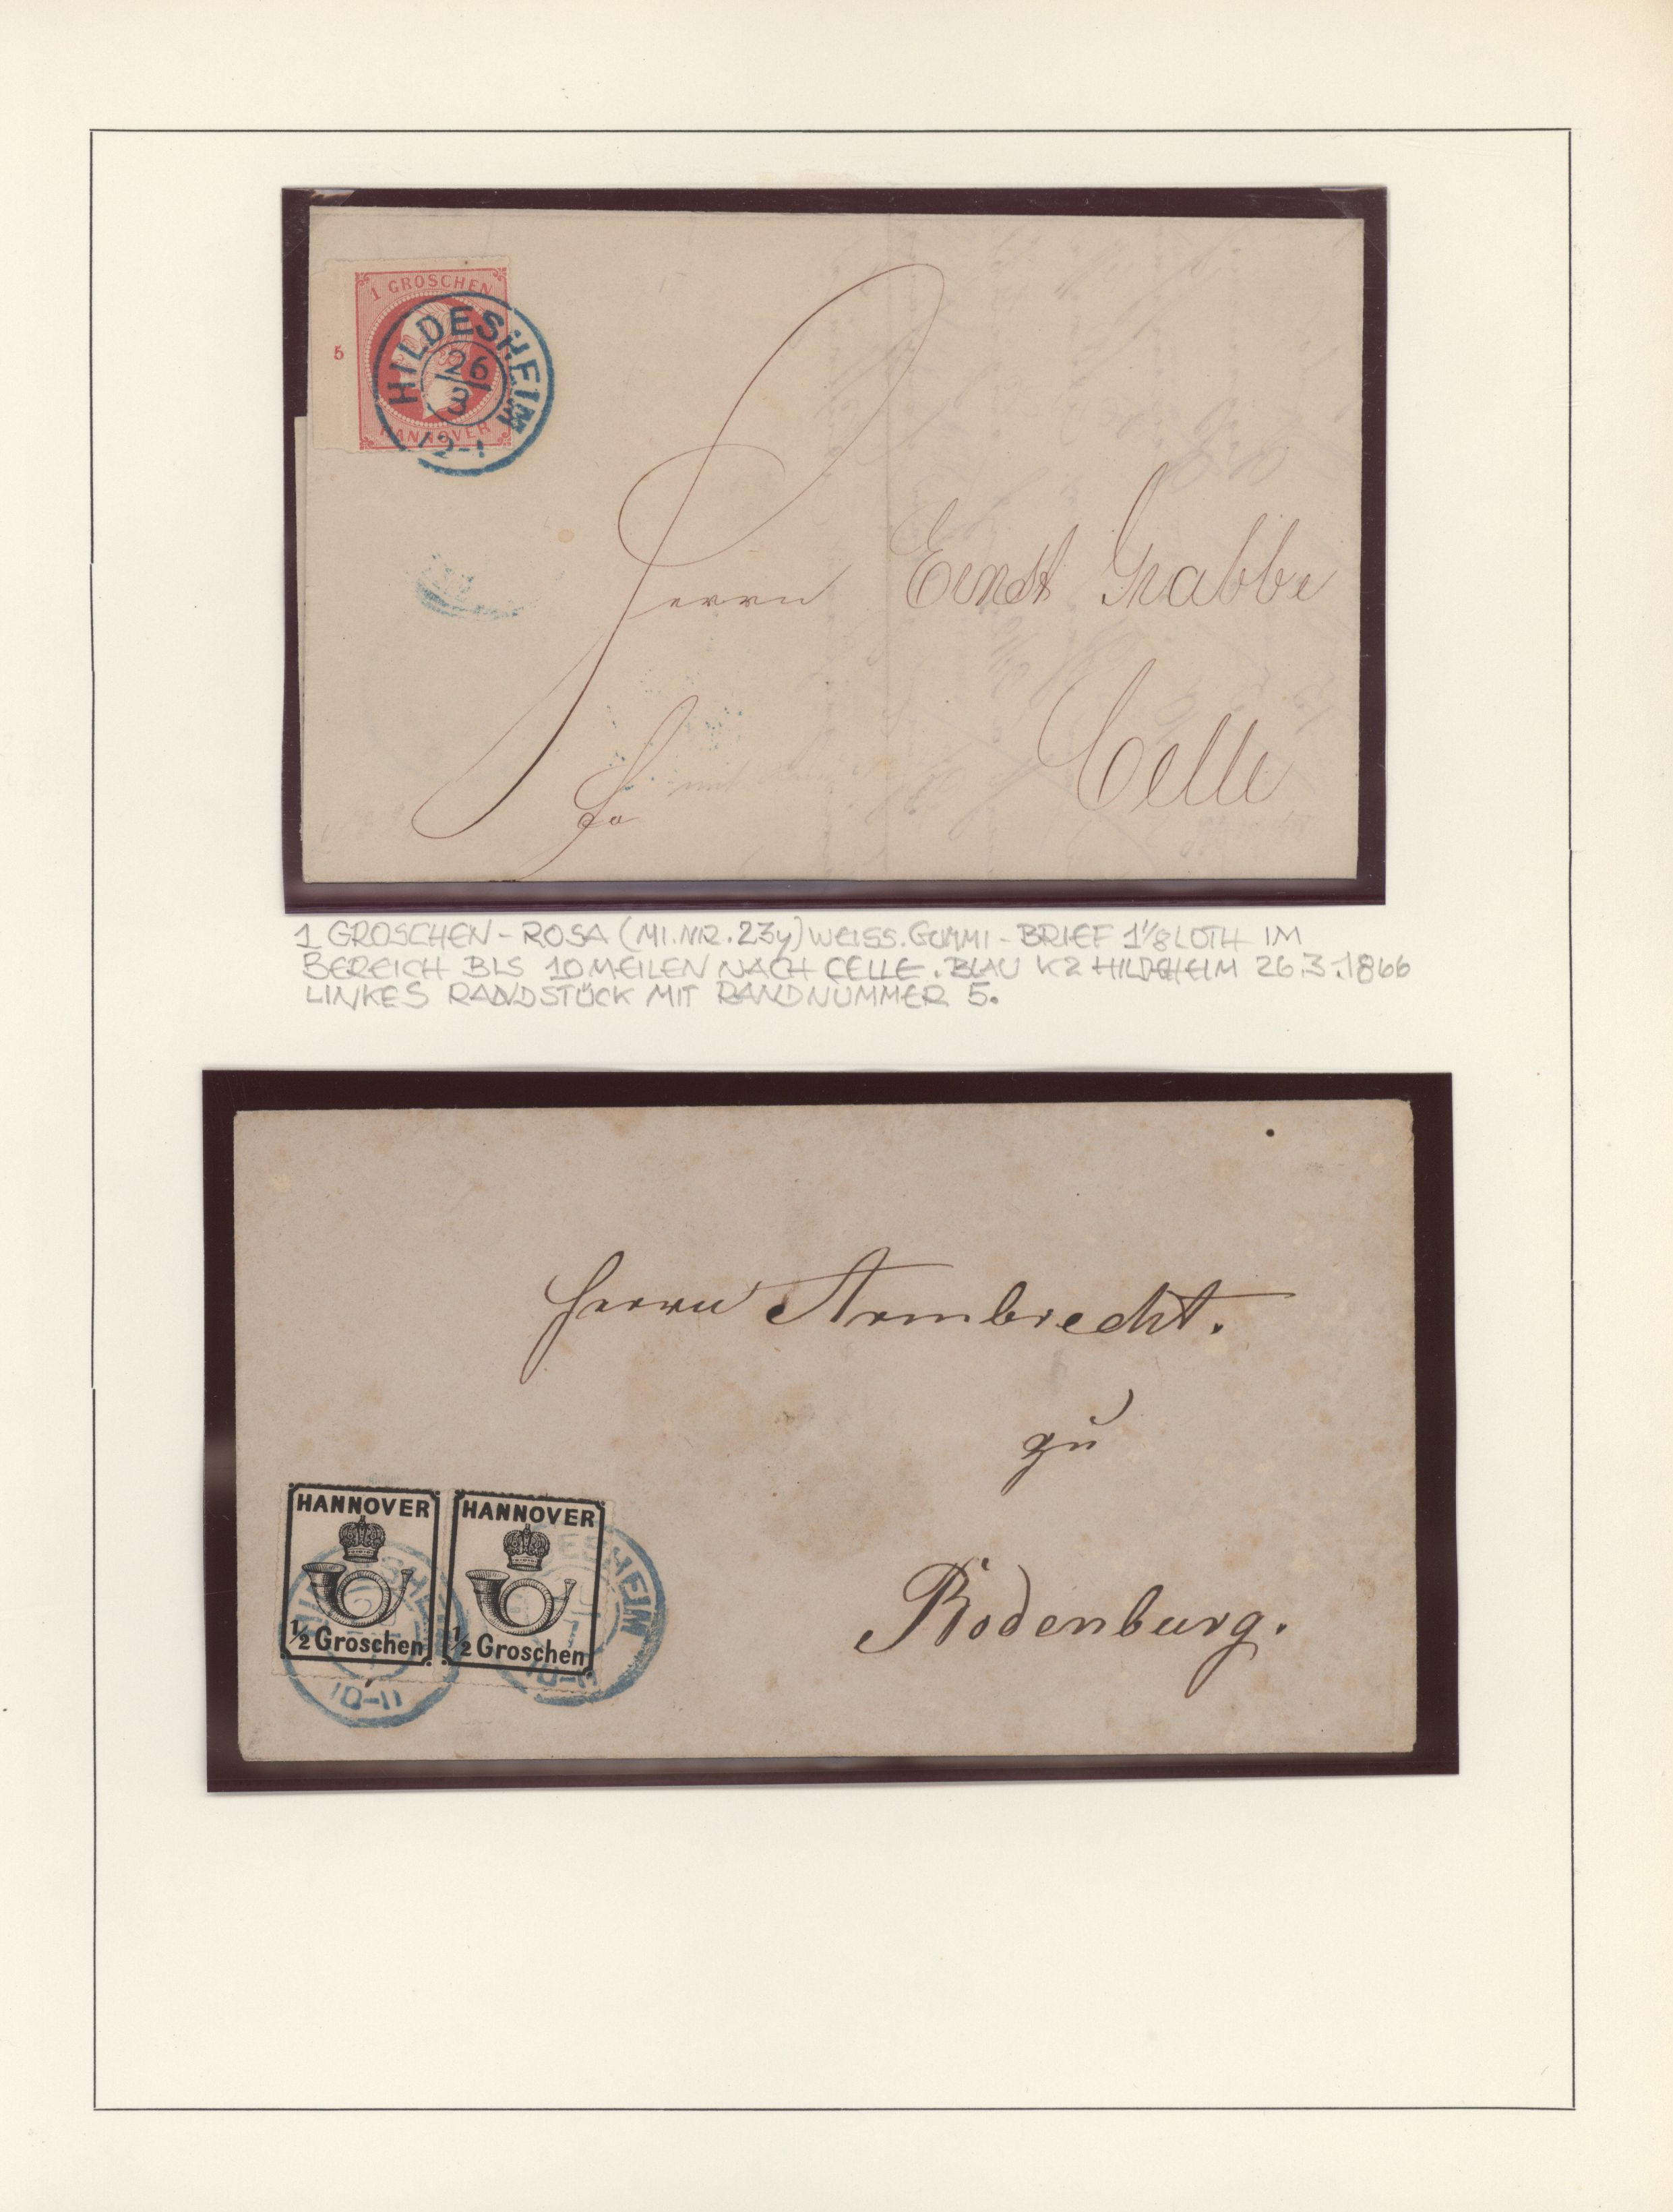 1 GROSCHEN
5
HILDESHEIM
26
3
12-1
HANNOVER
Herrn Ernst Grabbe
Celle
fro
1 GROSCHEN - ROSA (MI.NR. 23y) WEISS. GUMMI - BRIEF 1 1/8 LOTH IM
BEREICH BIS 10 MEILEN NACH CELLE. BLAU K2 HILDHEIM 26.3.1866
LINKES RANDSTÜCK MIT RANDNUMMER 5.
Herrn Armbrecht.
zu
Rodenburg.
HANNOVER HANNOVER
1/2 Groschen 1/2 Groschen
10-11 10-11